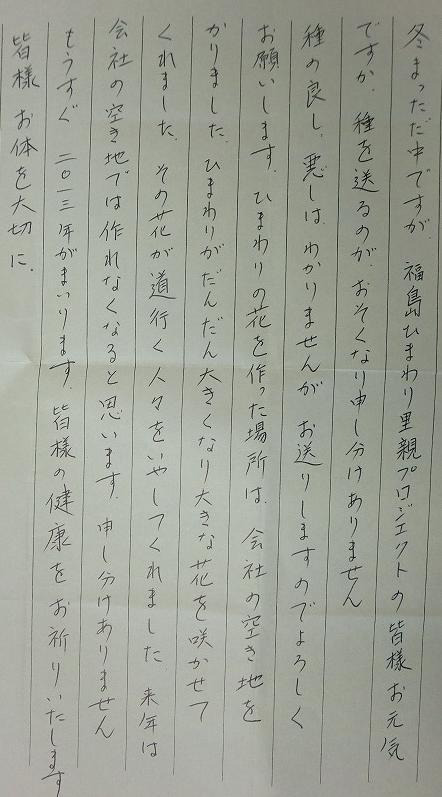 冬まっただ中ですが、福島ひまわり里親プロジェクトの皆様お元気
ですか、種を送るのが、おそくなり申し分けありません
種の良し、悪しは、わかりませんが、お送りしますのでよろしく
お願いします。ひまわりの花を作った場所は、会社の空き地を
かりました、ひまわりがだんだん大きくなり大きな花を咲かせて
くれました、その花が道行く人々をいやしてくれました 来年は
会社の空き地では作れなくなると思います、申し分けありません
もうすぐ 二〇一三年がまいります、皆様の健康をお祈りいたします
皆様 お体を大切に、